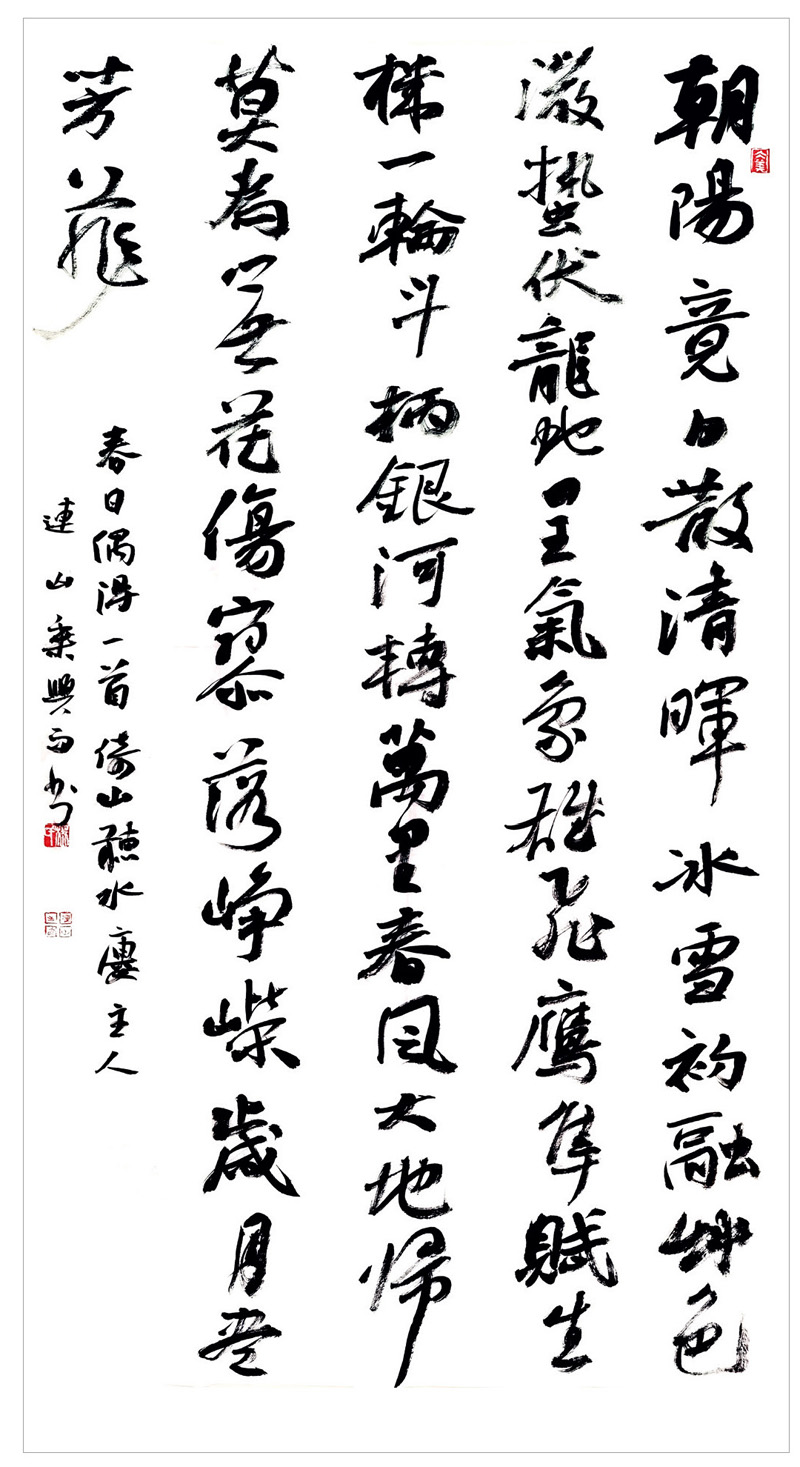 朝陽竟日散清暉冰雪初融艸色
微蟄伏龍虵呈氣象雄飛鷹隼賦生
機一輪斗柄銀河轉萬里春風大地歸
莫為無花傷寥落崢嶸歲月盡
芳菲
春日偶得一首倚山聽水廔主人
連山乘興而書